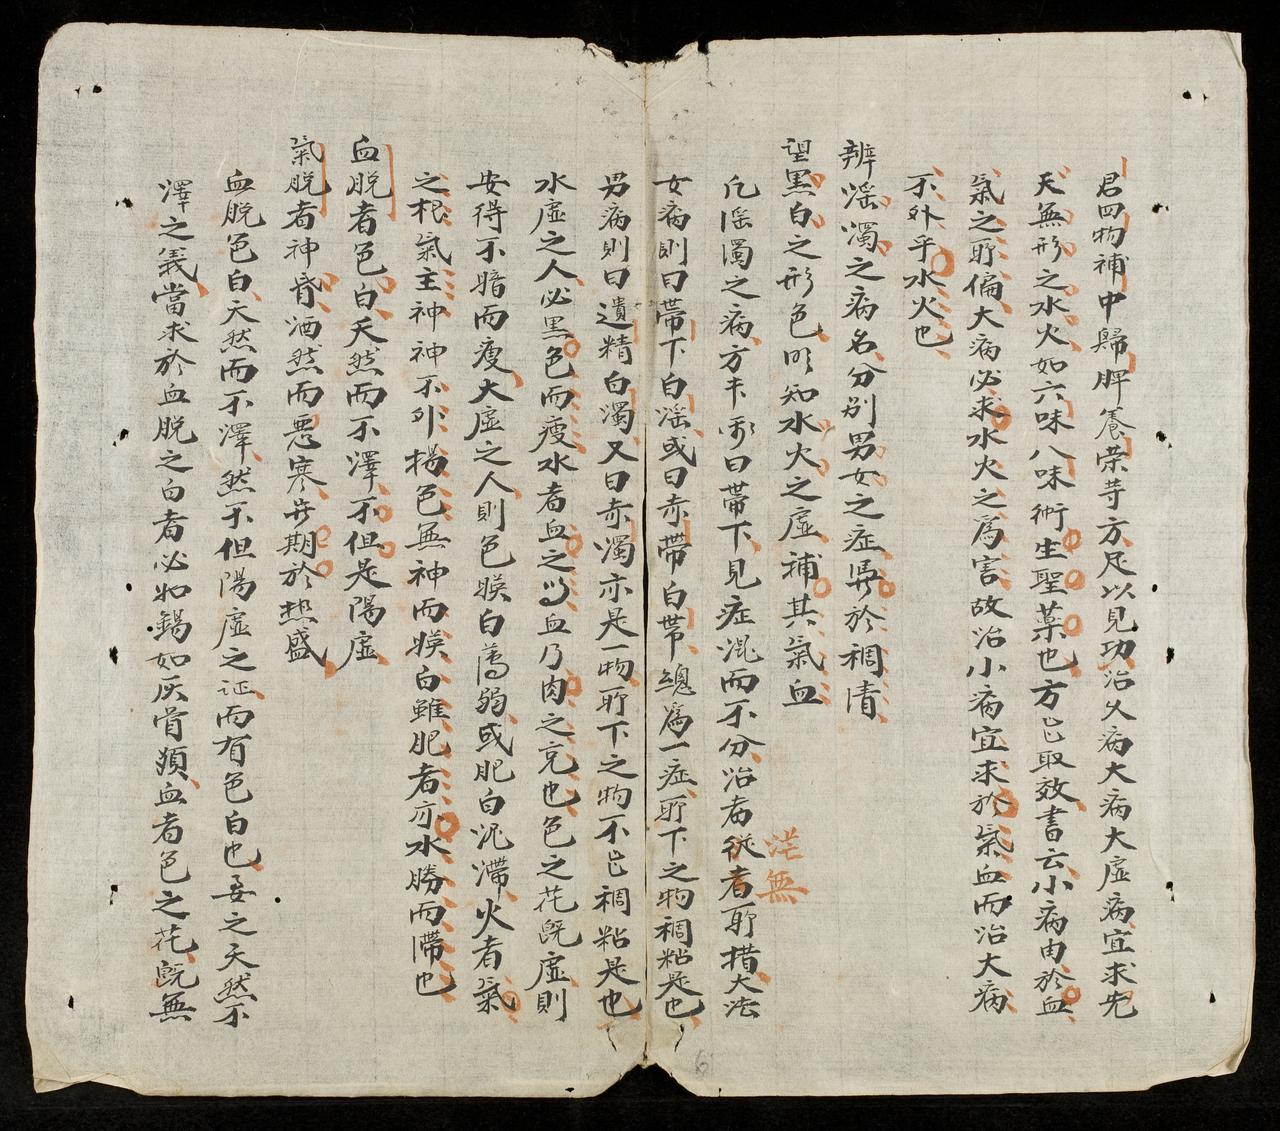 君四物補中歸脾養荣等方足以見功治久病大病大虛病宜求先
天無形之水火如六味八味術生聖藥也方䏻取效書云小病由於血
氣之所偏大病必求水火之爲害故治小病宜求於氣血而治大病
不外乎水火也
辨滛濁之病名分别男女之症異於稠清
望黑白之形色明知水火之虛補其氣血
凡滛濁之病方书曰帶下見症混而不分治者從者所措大法
茫無
女病則曰帶下白滛或曰赤帶白带總爲一症所下之物稠粘是也
男病則曰遺精白濁又曰赤濁亦是一物所下之物不䏻稠粘是也
水虛之人必黑色而瘦水者血之血乃肉之克也色之花既虛則
安得不暗而瘦火虛之人則色㿠白薄弱或肥白泥滯火者氣
之根氣主神神不外揚色無神而㿠白雖肥者亦水勝而滯也
血脱者色白天然而不澤不但是陽虛
氣脱者神昏洒然而悪寒并期於热盛
血脱色白天然而不澤然不但陽虛之证而有色白也妄之天然不
澤之義當求於血脱之白者必如錫如灰骨須血者色之花既無